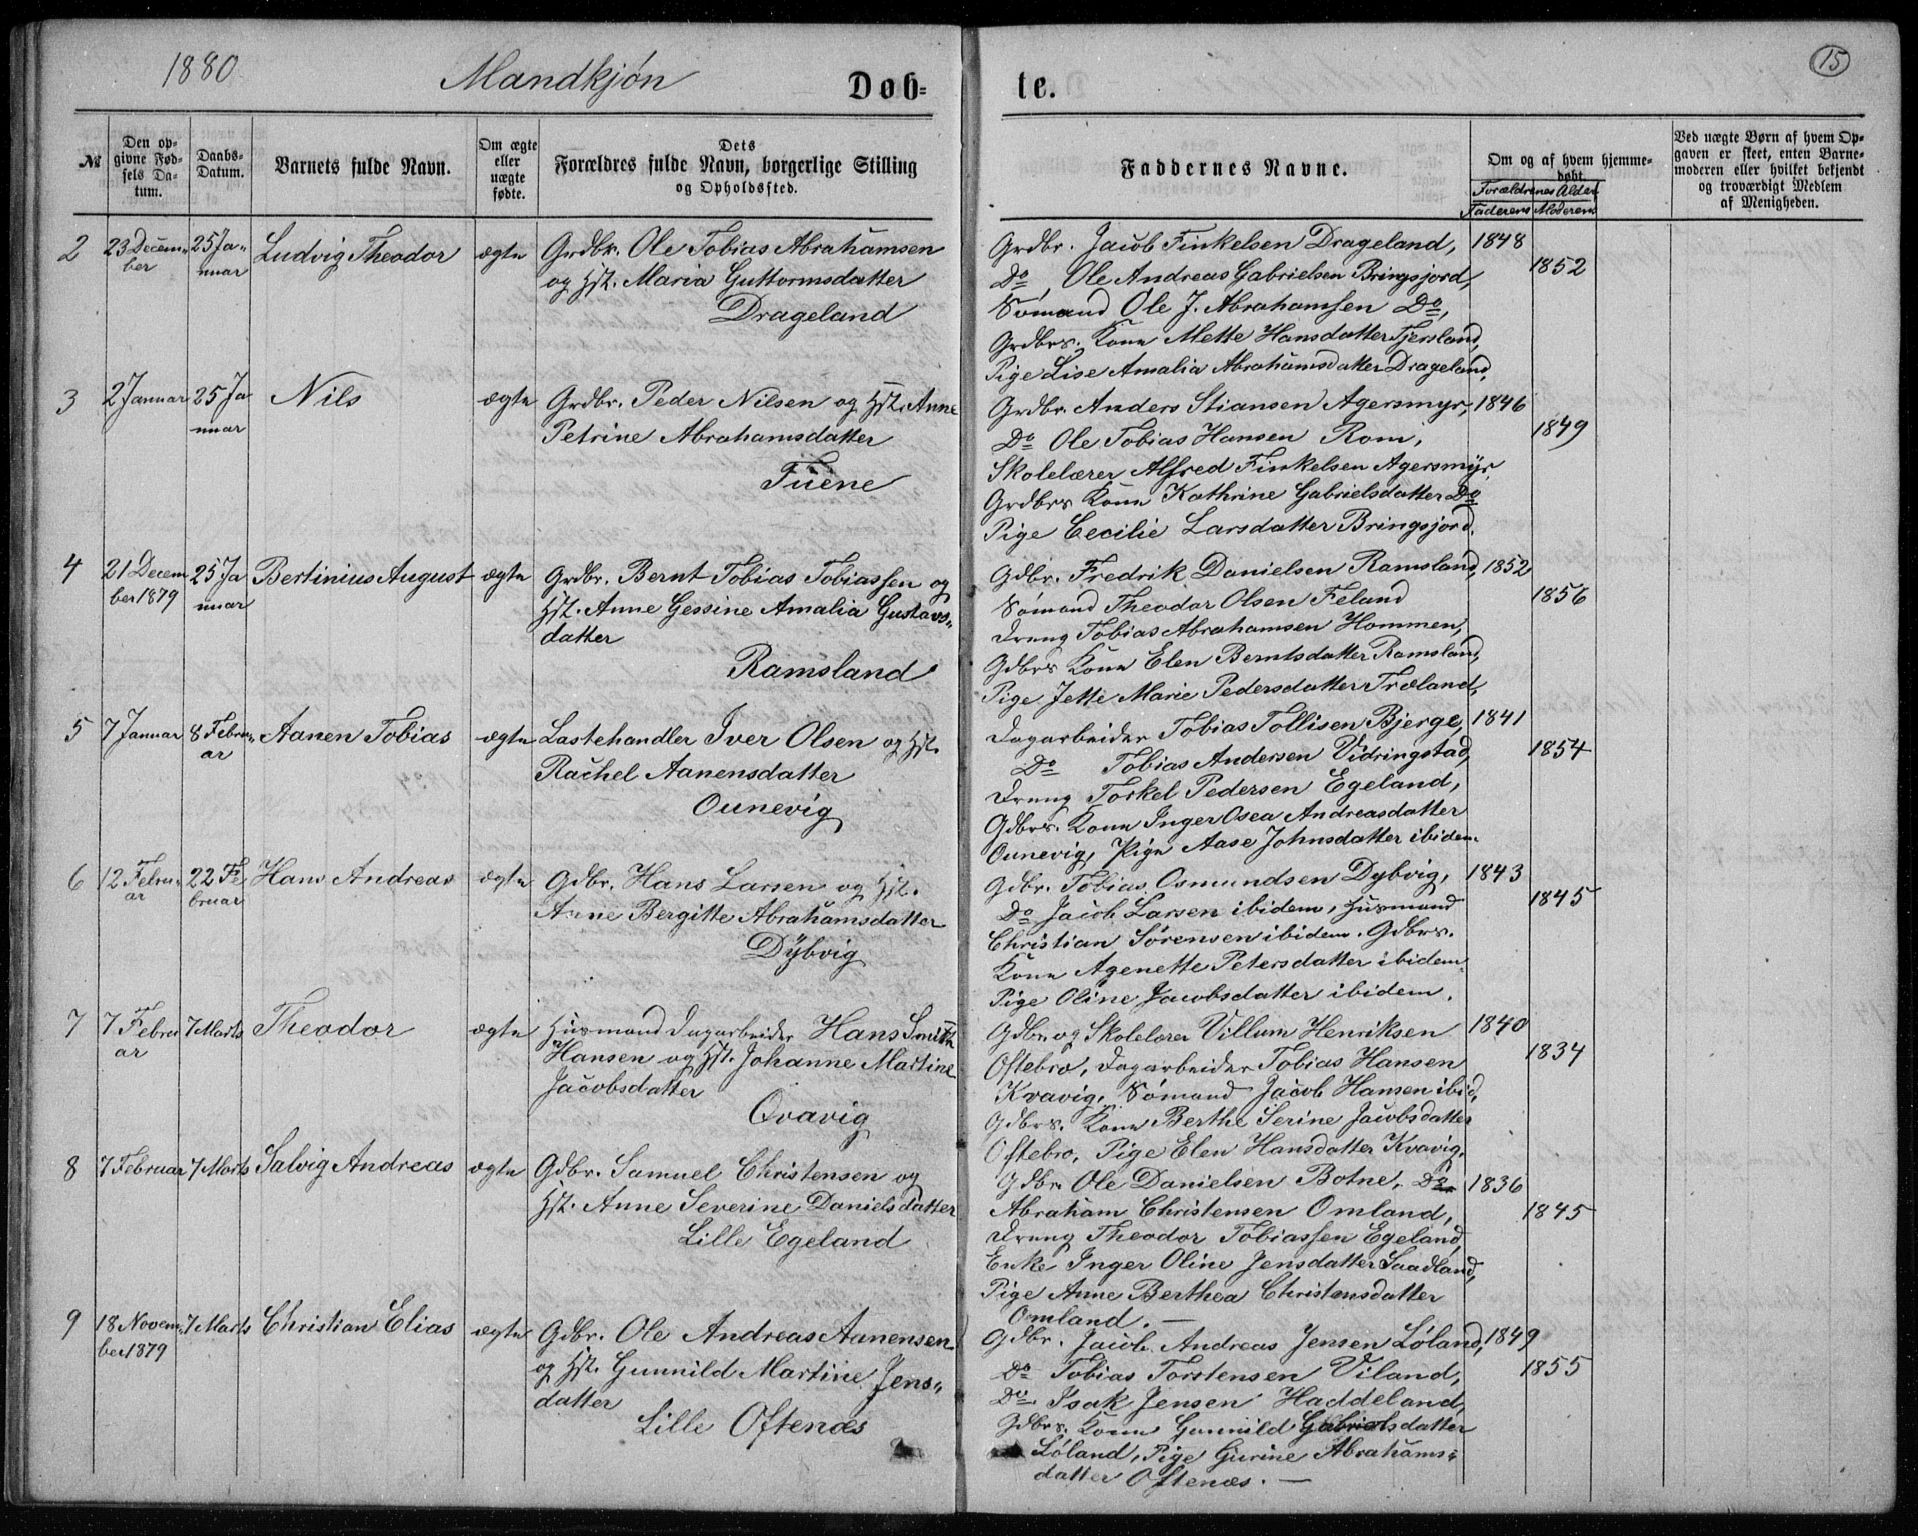 1880
Mandkjøn
Døb-
te.
15
№
Den op-
givne Fød-
sels Da-
tum.
Daabs-
Datum.
Barnets fulde Navn.
Om ægte
eller
uægte
fødte.
Dets
Forældres fulde Navn, borgerlige Stilling
og Opholdssted.
Faddernes Navne.
Om og af hvem hjemme-
døbt.
Forældrenes Alder
Faderens Moderens
Ved uægte Børn af hvem Op-
gaven er skeet, enten Barne-
moderen eller hvilket bekjendt
og troværdigt Medlem
af Menigheden.
2
23 Decem-
ber
25 Ja-
nuar
Ludvig Theodor
ægte
Grdbr. Ole Tobias Abrahamsen
og Hst. Maria Guttormsdatter
Drageland
Grdbr. Jacob Finkelsen Drageland,
Do, Ole Andreas Gabrielsen Bringsjord,
Sømand Ole J. Abrahamsen Do,
Grdbrs. Kone Mette Hansdatter Tjersland,
Pige Lise Amalia Abrahamsdatter Drageland,
1848
1852
3
2 Januar
25 Ja
nuar
Nils
ægte
Grdbr. Peder Nilsen og Hst. Anne
Petrine Abrahamsdatter
Tuene
Grdbr. Anders Stiansen Agersmyr,
Do Ole Tobias Hansen Rom,
Skolelærer Alfred Finkelsen Agersmyr,
Grdbrs Kone Kathrine Gabrielsdatter Do
Pige Cecilie Larsdatter Bringsjord.
1846
1849
4
21 Decem
ber 1879
25 Ja
nuar
Bertinius August
ægte
Grdbr. Bernt Tobias Tobiassen og
Hst. Anne Gessine Amalia Gustavs-
datter
Ramsland
Gdbr. Fredrik Danielsen Ramsland,
Sømand Theodor Olsen Feland
Dreng Tobias Abrahamsen Hommen,
Gdbrs Kone Elen Berntsdatter Ramsland,
Pige Jette Marie Pedersdatter Træland,
1852
1856
5
7 Januar
8 Febru-
ar
Aanen Tobias
ægte
Lastehandler Iver Olsen og Hst.
Rachel Aanensdatter
Ounevig
Dagarbeider Tobias Tollisen Bjerge,
Do Tobias Andersen Vidringstad,
Dreng Torkel Pedersen Egeland,
Gdbrs. Kone Inger Osea Andreasdatter
Ounevig, Pige Aase Johnsdatter ibidem.
1841
1854
6
12 Febru-
ar
22 Fe
bruar
Hans Andreas
ægte
Gdbr. Hans Larsen og Hst.
Anne Bergitte Abrahamsdatter
Dybvig
Gdbr. Tobias Osmundsen Dybvig,
Do Jacob Larsen ibidem, Husmand
Christian Sørensen ibidem. Gdbrs.
Kone Agenette Petersdatter ibidem.
Pige Oline Jacobsdatter ibidem.
1843
1845
7
7 Febru
ar
7 Marts
Theodor
ægte
Husmand Dagarbeider Hans Smith
Hansen og Hst. Johanne Martine
Jacobsdatter
Qvavig
Gdbr. og Skolelærer Villum Henriksen
Oftebro, Dagarbeider Tobias Hansen
Kvavig, Sømand Jacob Hansen ibid,
Gdbrs. Kone Berthe Serine Jacobsdatter
Oftebro, Pige Elen Hansdatter Kvavig.
1840
1834
8
7 Februar
7 Marts
Salvig Andreas
ægte
Gdbr. Samuel Christensen og
Hst. Anne Severine Danielsdatter
Lille Egeland
Gdbr. Ole Danielsen Botne, Do
Abraham Christensen Omland,
Dreng Theodor Tobiassen Egeland,
Enke Inger Oline Jensdatter Saadland,
Pige Anne Berthea Christensdatter
Omland. —
1836
1845
9
18 Novem-
ber 1879
7 Marts
Christian Elias
ægte
Gdbr. Ole Andreas Aanensen
og Hst. Gunnild Martine Jens-
datter
Lille Oftenæs
Gdbr. Jacob Andreas Jensen Løland,
Do Tobias Torstensen Viland,
Do Isak Jensen Haddeland,
Gdbrs. Kone Gunnild Gabrielsdatter
Løland, Pige Gurine Abrahams-
datter Oftenæs. —
1849
1855